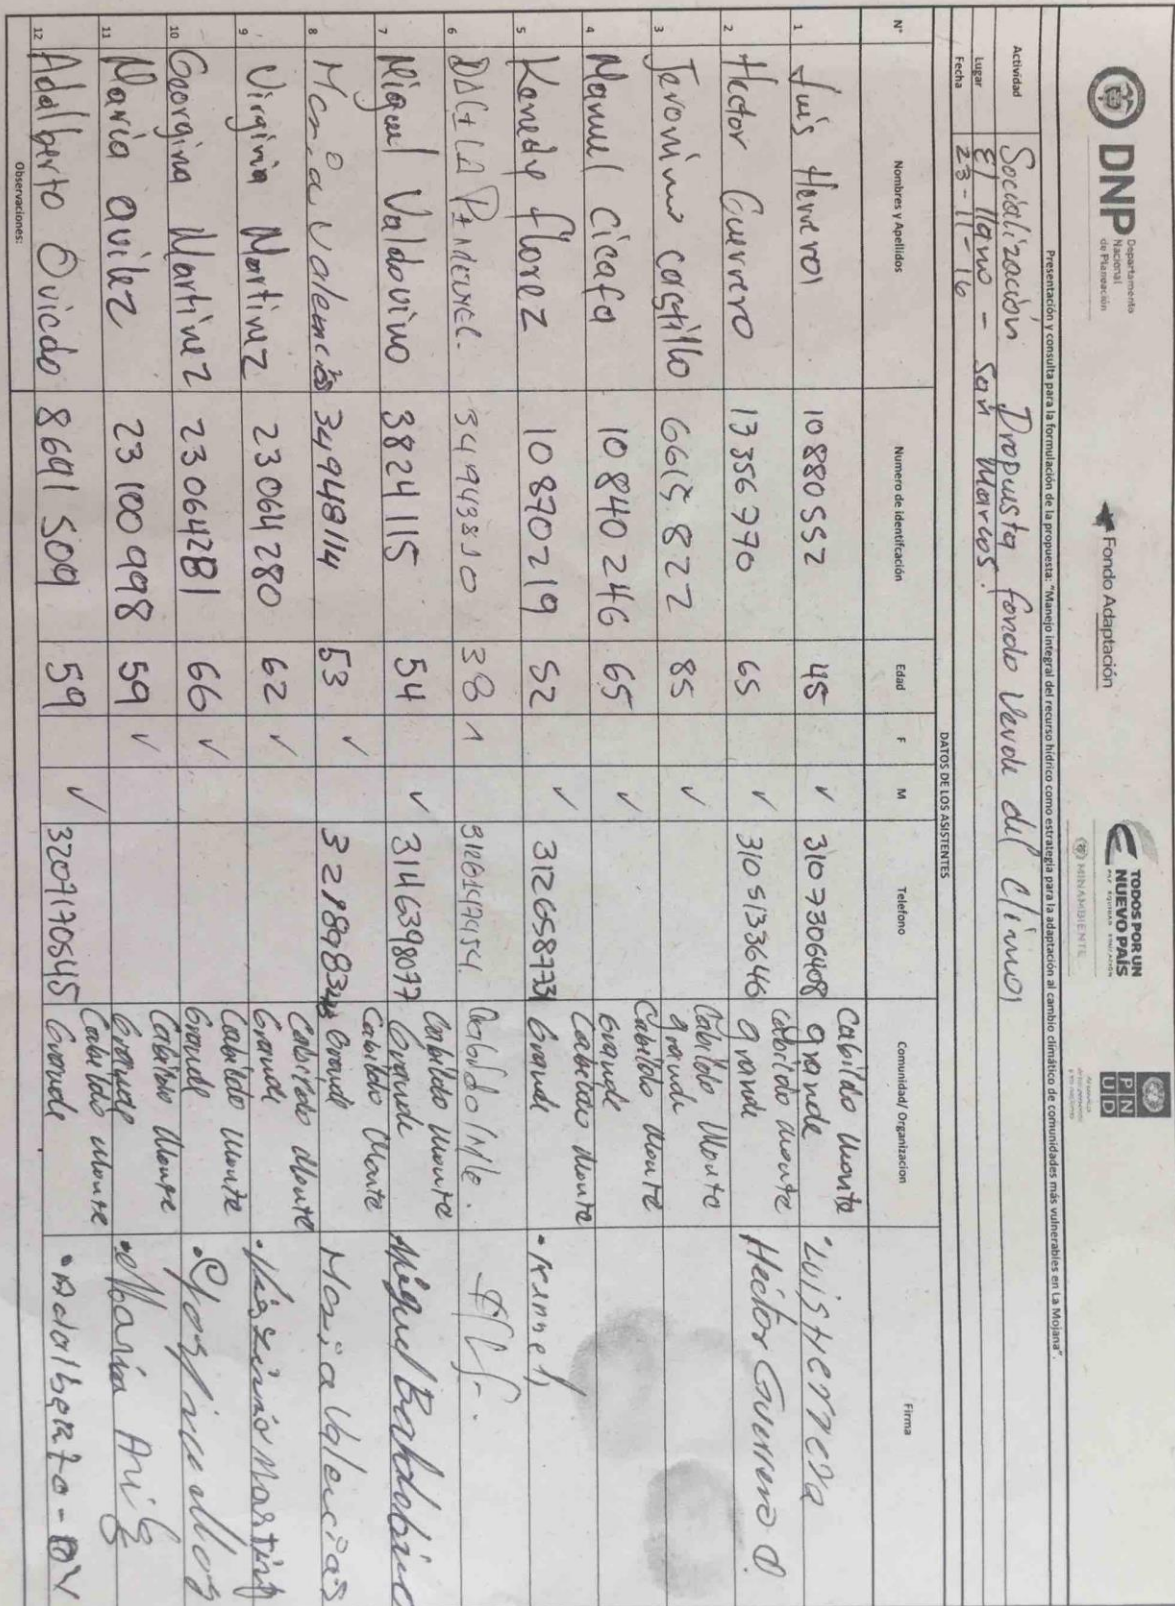 DNP Departamento
Nacional
de Planeación
Fondo Adaptación
TODOS POR UN
NUEVO PAÍS
PAZ EQUIDAD EDUCACIÓN
MINAMBIENTE
PNUD
Presentación y consulta para la formulación de la propuesta: "Manejo integral del recurso hídrico como estrategia para la adaptación al cambio climático de comunidades más vulnerables en La Mojana".
Actividad Socialización Propuesta fondo Verde del Clima
Lugar El llano - San Marcos.
Fecha 23-11-16
DATOS DE LOS ASISTENTES
N° Nombres y Apellidos Numero de identifcación Edad F M Telefono Comunidad/ Organizacion Firma
1 Luis Herrera 10880552 45 ✓ 3107306408 Cabildo Monte grande Luis Herrera
2 Hector Guerrero 13356770 65 ✓ 3105133646 Cabildo monte grande Hector Guerrero O.
3 Jeronimo castillo 6615822 85 ✓ Cabildo Monte grande
4 Manuel Cicafa 10840246 65 ✓ Cabildo Monte Grande
5 Kenedy florez 10870219 52 ✓ 3126587731 Cabildo Monte Grande
6 34943810 38 1 3126147454. Cabildo
7 Miguel Valdovino 3824115 54 ✓ 3146398077 Cabildo Monte Grande Miguel Baldobino
8 Maria Valencia 34948114 53 ✓ Cabildo Monte Grande Maria Valencias
9 Virginia Martinez 23064280 62 ✓ Cabildo Monte Grande
10 Georgina Martinez 23064281 66 ✓ Cabildo Monte Grande
11 Maria avilez 23100998 59 ✓ Cabildo Monte Grande Maria
12 Adalberto Oviedo 8691509 59 ✓ 3207170545 Cabildo Monte Grande
Observaciones: